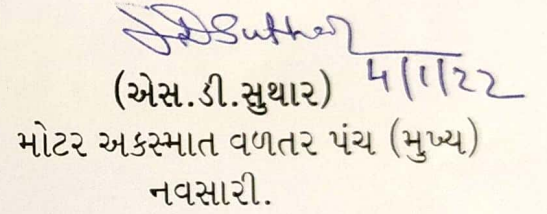 S.D.Suthar
4/1/22
(એસ.ડી.સુથાર)
મોટર અકસ્માત વળતર પંચ (મુખ્ય)
નવસારી.